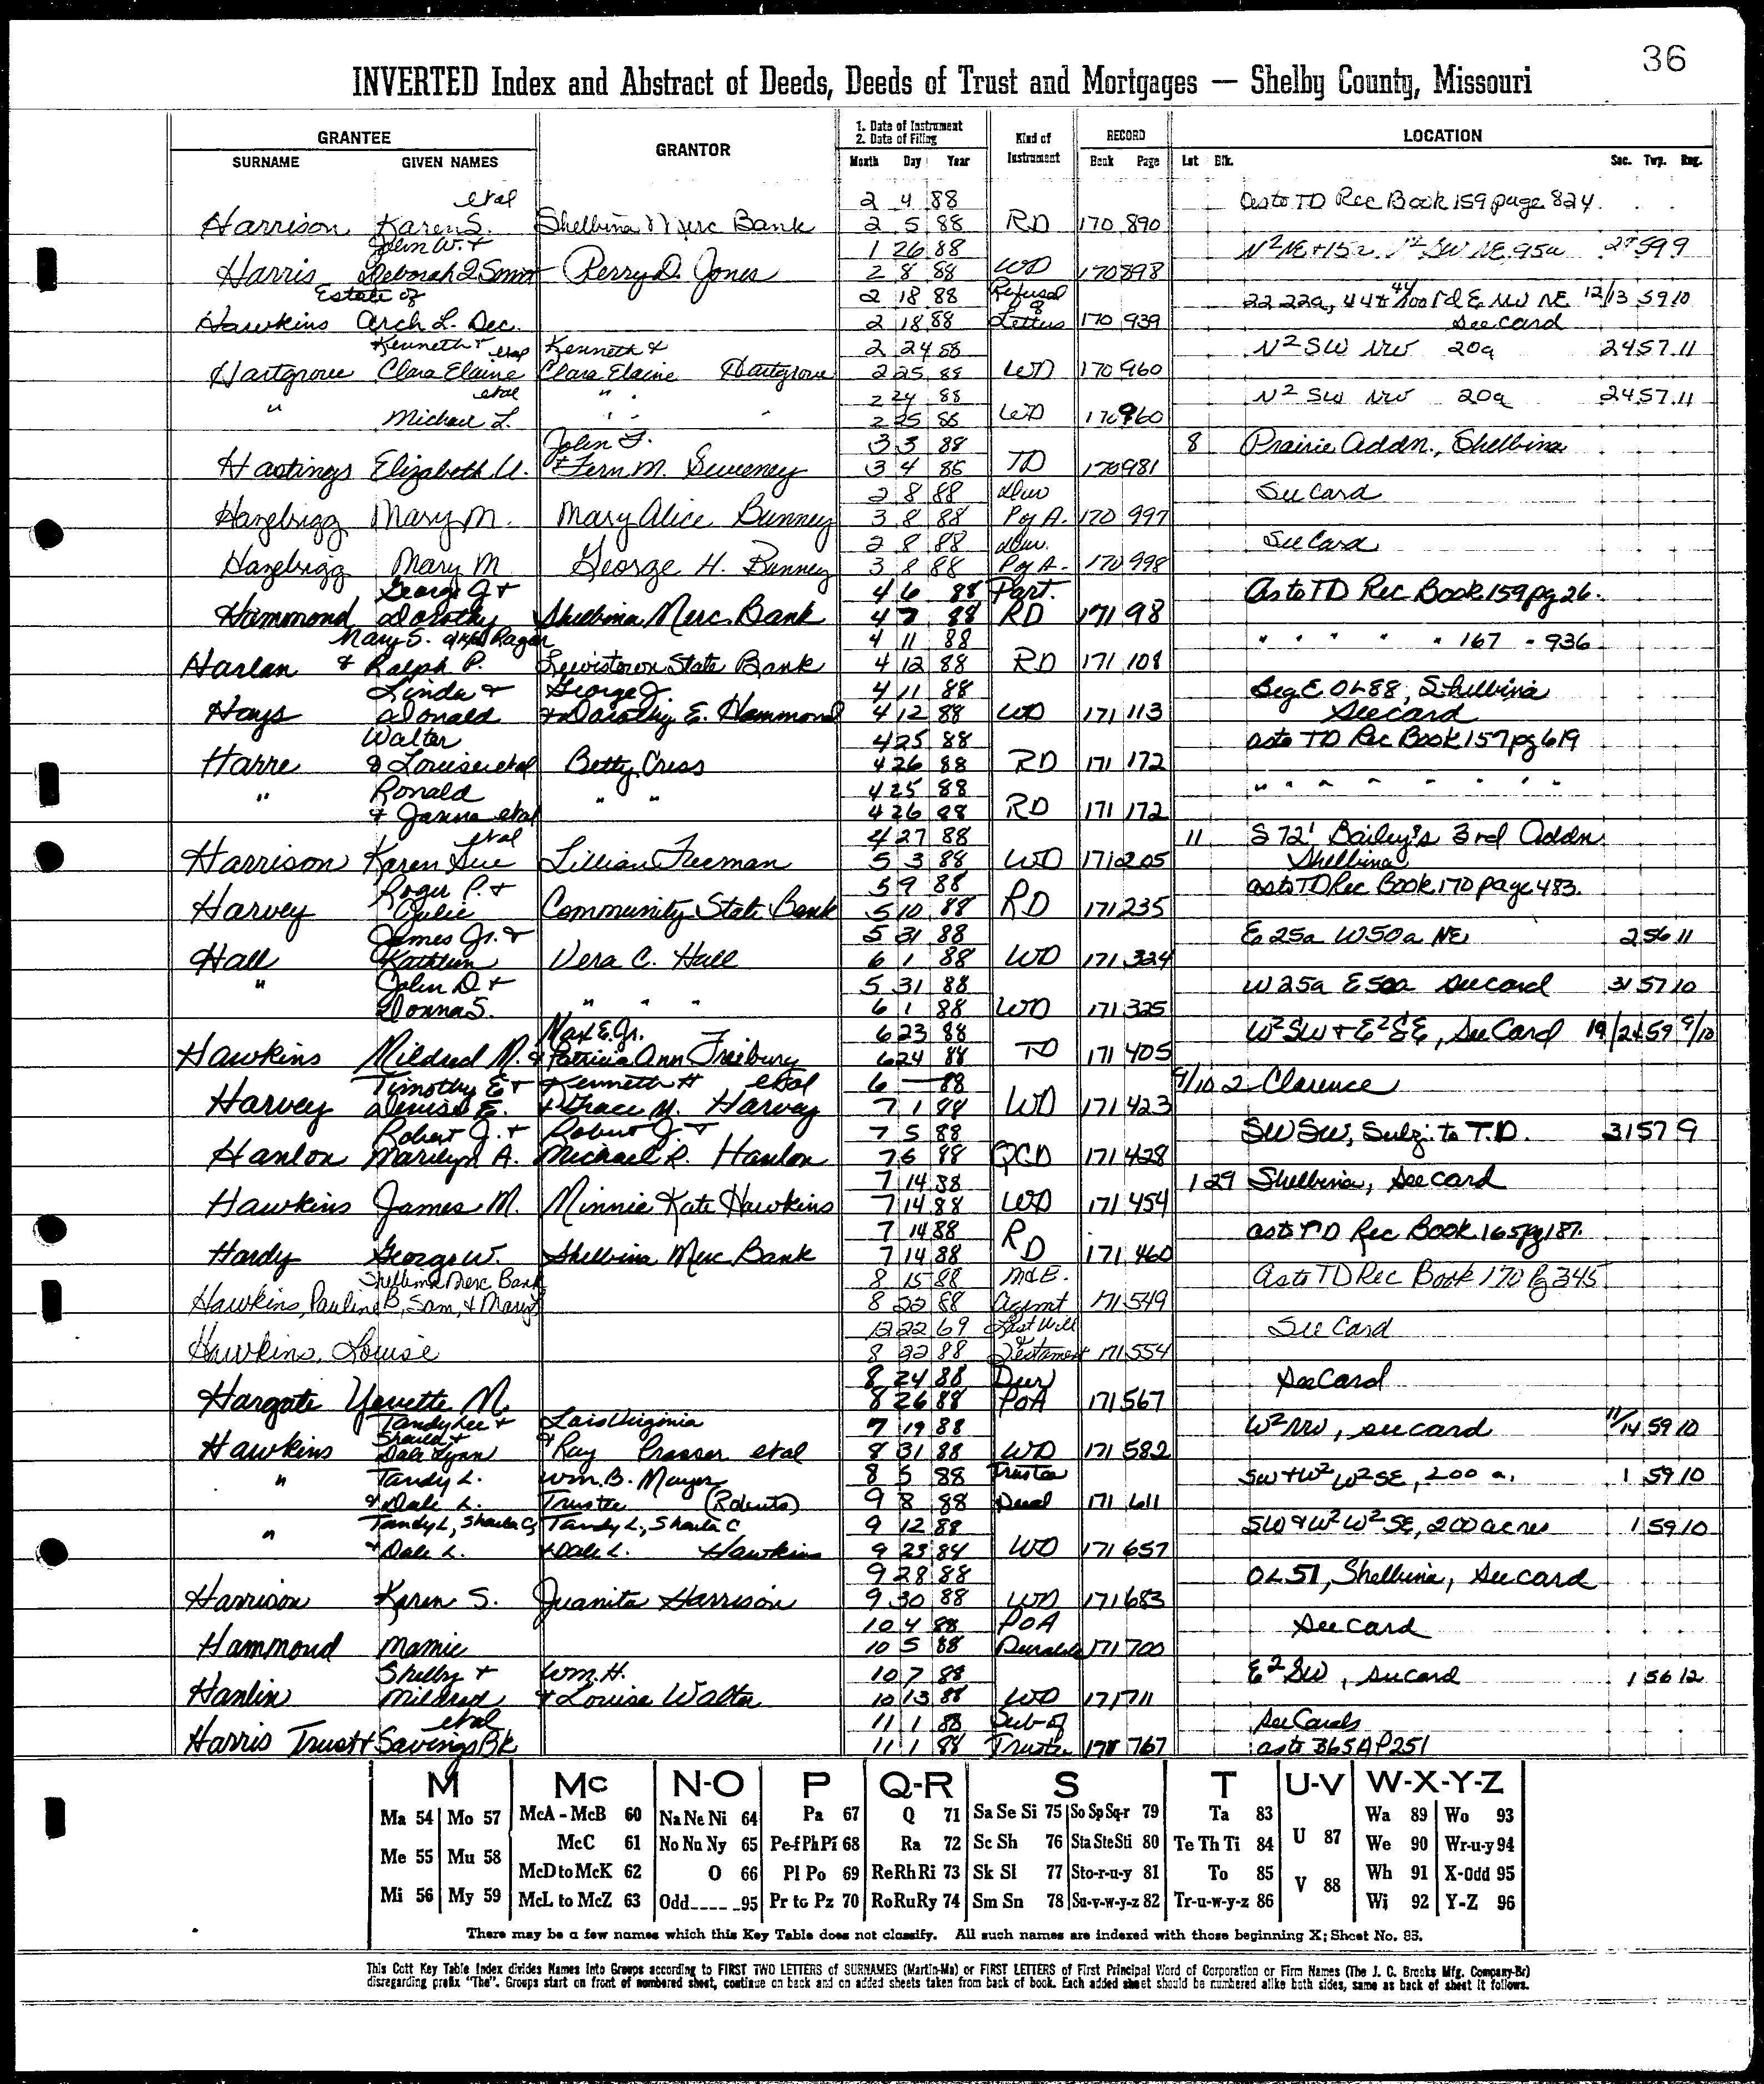 36
INVERTED Index and Abstract of Deeds, Deeds of Trust and Mortgages — Shelby County, Missouri
GRANTEE GRANTOR 1. Date of Instrument 2. Date of Filing Kind of Instrument RECORD LOCATION
SURNAME GIVEN NAMES Month Day Year Book Page Lot Blk. Sec. Twp. Rng.
etal 2 4 88 as to TD Rec Book 159 page 824
Harrison Karen S. Shelbina Merc Bank 2 5 88 RD 170 890
John W. & 1 26 88 N² NE + 15a SW NE 95a
Harris Deborah Perry D. Jones 2 8 88 WD 170 898
Estate of 2 18 88 Refusal 22 22a, NW NE 12/13 59 10
Hawkins Arch L. Dec. 2 18 88 Letters 170 939 See card
Kenneth & etal Kenneth & 2 24 88 N² SW NW 20a 24 57 11
Hartgrove Clara Elaine Clara Elaine Hartgrove 2 25 88 WD 170 960
etal " 2 24 88 N² SW NW 20a 24 57 11
" Michael L. " " 2 25 88 WD 170 960
John F. 3 3 88 8 Prairie Addn., Shelbina
Hastings Elizabeth A. & Fern M. Sweeney 3 4 88 TD 170 981
2 8 88 Dur See Card
Hazelrigg Mary M. Mary Alice Bunney 3 8 88 P of A. 170 997
2 8 88 Dur. See Card
Hazelrigg Mary M George H. Bunney 3 8 88 P of A. 170 998
George J & 4 6 88 Part. As to TD Rec Book 159 pg 26.
Hammond Dorothy Shelbina Merc. Bank 4 7 88 RD 171 98
Mary S. Ragar 4 11 88 " " " " " 167 - 936
Harlan & Ralph P. Lewistown State Bank 4 12 88 RD 171 108
Linda & George J. 4 11 88 Beg E OL 88, Shelbina
Hays Donald & Dorothy E. Hammond 4 12 88 WD 171 113 See card
Walter 4 25 88 as to TD Rec Book 157 pg 619
Harre & Louise etal Betty Cress 4 26 88 RD 171 172
" Ronald " " 4 25 88 " " " " " " " "
& Janna etal 4 26 88 RD 171 172
etal 4 27 88 11 S 72' Bailey's 3rd Addn
Harrison Karen Sue Lillian Freeman 5 3 88 WD 171 205 Shelbina
Roger P. & 5 9 88 as to TD Rec Book 170 page 483.
Harvey Julie Community State Bank 5 10 88 RD 171 235
James Jr. & 5 31 88 E 25a W50a NE 2 56 11
Hall Kathleen Vera C. Hall 6 1 88 WD 171 324
" John D & 5 31 88 W 25a E 50a See card 31 57 10
Donna S. " " " 6 1 88 WD 171 325
Max E. Jr. 6 23 88 W² SW + E² SE, See Card 19/24 59 9/10
Hawkins Mildred M. & Patricia Ann Freibury 6 24 88 TD 171 405
Timothy E & Kenneth H etal 6 — 88 9/10 2 Clarence
Harvey Denise E. & Grace M. Harvey 7 1 88 WD 171 423
Robert J. & Robert J. & 7 5 88 SW SW, Subj. to T.D. 31 57 9
Hanlon Marilyn A. Michael R. Hanlon 7 6 88 QCD 171 428
7 14 88 1 29 Shelbina, See card
Hawkins James M. Minnie Kate Hawkins 7 14 88 WD 171 454
7 14 88 as to TD Rec Book 165 pg 187.
Hardy George W. Shelbina Merc Bank 7 14 88 RD 171 460
Shelbina Merc Bank 8 15 88 M & E. As to TD Rec Book 170 Pg 345
Hawkins, Pauline B, Sam, & Mary 8 22 88 Agemt 171 549
12 22 69 Last Will See Card
Hawkins, Louise 8 22 88 & Testament 171 554
8 24 88 Dur See Card
Hargate Yevette M. 8 26 88 PoA 171 567
Tandy Lee & Lois Virginia 7 19 88 W² NW, See card 11/14 59 10
Hawkins Sheila & Dale Lynn & Ray Prosser etal 8 31 88 WD 171 582
" Tandy L. Wm. B. Mayer 8 5 88 Trustee SW + W² W² SE, 200 a. 1 59 10
& Dale L. Trustee (Roberts) 9 8 88 Deed 171 611
" Tandy L, Sheila C, Tandy L, Sheila C 9 12 88 SW & W² W² SE, 200 acres 1 59 10
& Dale L. & Dale L. Hawkins 9 23 88 WD 171 657
9 28 88 OL 51, Shelbina, See card
Harrison Karen S. Juanita Harrison 9 30 88 WD 171 683
10 4 88 PoA See card
Hammond Mamie 10 5 88 Durable 171 700
Shelby & Wm. H. 10 7 88 E² SW, See card 1 56 12
Hanlin Mildred & Louise Walter 10 13 88 WD 171 711
etal 11 1 88 Sub of See Cards
Harris Trust & Savings Bk 11 1 88 Trustee 171 767 as to B65A P251
M Mc N-O P Q-R S T U-V W-X-Y-Z
Ma 54 Mo 57 McA - McB 60 Na Ne Ni 64 Pa 67 Q 71 Sa Se Si 75 So Sp Sq-r 79 Ta 83 U 87 Wa 89 Wo 93
McC 61 No Nu Ny 65 Pe-f Ph Pi 68 Ra 72 Sc Sh 76 Sta Ste Sti 80 Te Th Ti 84 We 90 Wr-u-y 94
Me 55 Mu 58 McD to McK 62 O 66 Pl Po 69 Re Rh Ri 73 Sk Sl 77 Sto-r-u-y 81 To 85 V 88 Wh 91 X-Odd 95
Mi 56 My 59 McL to McZ 63 Odd 95 Pr to Pz 70 Ro Ru Ry 74 Sm Sn 78 Su-v-w-y-z 82 Tr-u-w-y-z 86 Wi 92 Y-Z 96
There may be a few names which this Key Table does not classify. All such names are indexed with those beginning X; Sheet No. 95.
This Cott Key Table Index divides Names into Groups according to FIRST TWO LETTERS of SURNAMES (Martin-Ma) or FIRST LETTERS of First Principal Word of Corporation or Firm Names (The J. C. Brooks Mfg. Company-Br)
disregarding prefix "The". Groups start on front of numbered sheet, continue on back and on added sheets taken from back of book. Each added sheet should be numbered alike both sides, same as back of sheet it follows.